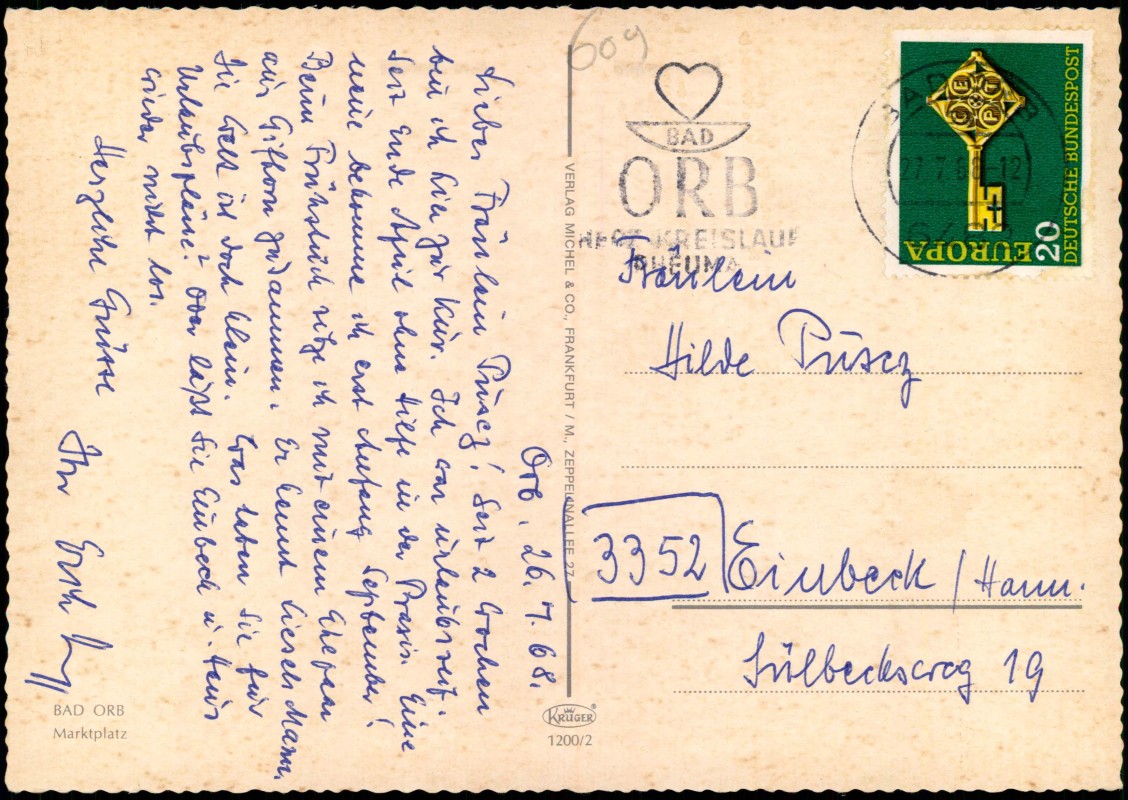 Orb, 26.7.68.
Liebes Fräulein Pusez! Seit 2 Wochen
bin ich hier zur Kur. Ich war urlaubsreif.
Seit Ende April ohne Hilfe in der Praxis. Eine
neue bekomme ich erst Anfang September!
Beim Frühstück sitze ich mit einem Ehepaar
aus Gifhorn zusammen. Er kennt Mann.
Die Welt ist doch klein. Was haben Sie für
Urlaubspläne? Oder läßt Sie Einbeck u. Haus
wieder nicht los.
Herzliche Grüsse
Ihr
BAD ORB
Marktplatz
VERLAG MICHEL & CO., FRANKFURT / M., ZEPPELINALLEE 27
KRÜGER
1200/2
609
BAD
ORB
HERZ-KREISLAUF
RHEUMA
27.7.68-12
DEUTSCHE BUNDESPOST
20
EUROPA
CEPT
Fräulein
Hilde Pusez
3352 Einbeck / Hann.
Sülbecksweg 19